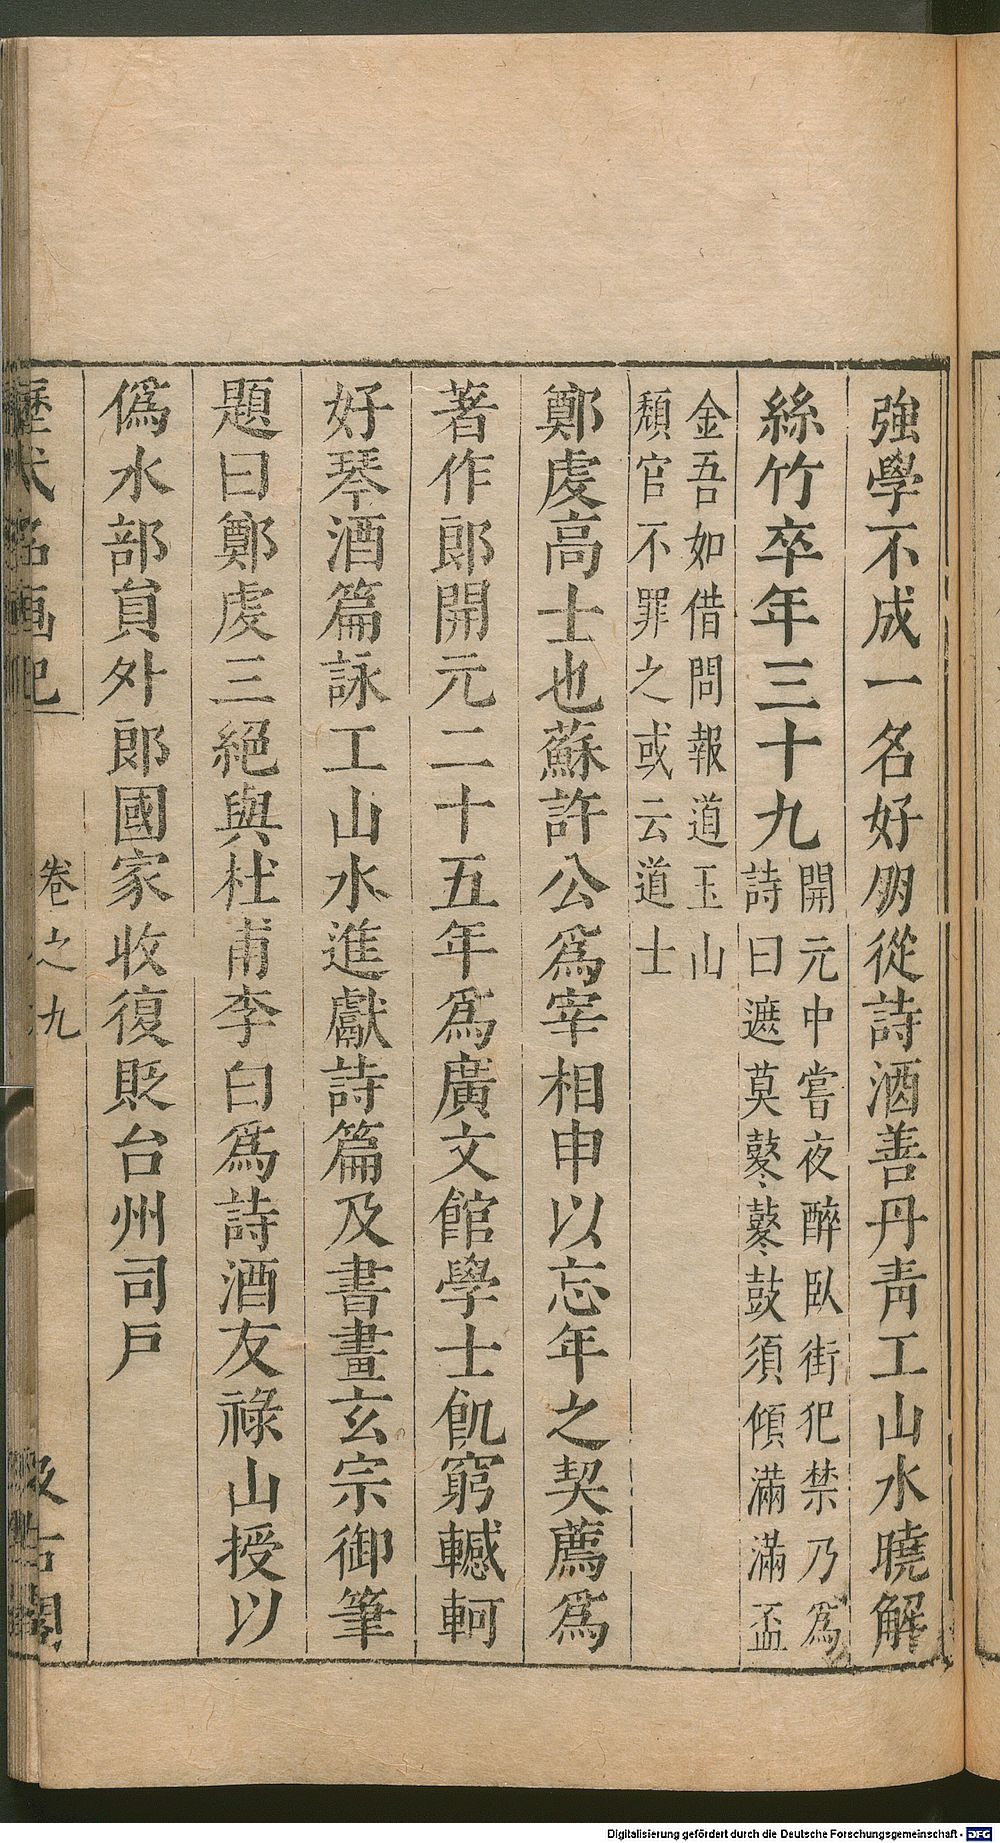 強學不成一名好朋從詩酒善丹靑工山水曉解
絲竹卒年三十九開元中嘗夜醉臥街犯禁乃爲
詩曰遮莫鼕鼕鼓須傾滿滿盃
金吾如借問報道玉山
頽官不罪之或云道士
鄭虔高士也蘇許公爲宰相申以忘年之契薦爲
著作郎開元二十五年爲廣文館學士飢窮轗軻
好琴酒篇詠工山水進獻詩篇及書畫玄宗御筆
題曰鄭虔三絕與杜甫李白爲詩酒友祿山授以
僞水部員外郎國家收復貶台州司戶
歷代名画記
卷之九
汲古閣
Digitalisierung gefördert durch die Deutsche Forschungsgemeinschaft - DFG